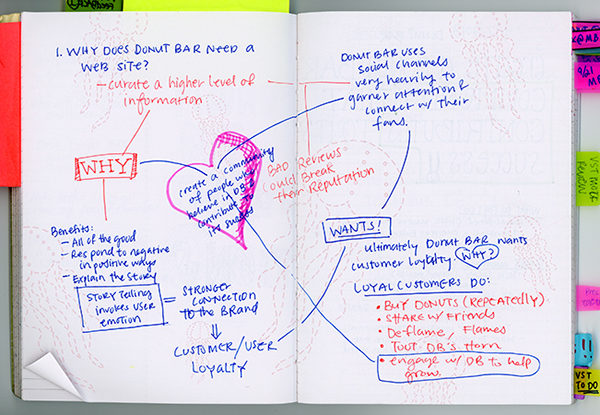 1. WHY DOES DONUT BAR NEED A
WEB SITE?
- curate a higher level of
information
WHY
create a community
of people who
believe in DB &
contribute to
its success
Benefits:
- All of the good
- Respond to negative
in positive ways
- Explain the Story
STORY Telling
invokes USER
emotion
= STRONGER
CONNECTION
TO THE BRAND
CUSTOMER/USER
LOYALTY
DONUT BAR USES
social channels
very heavily to
garner attention &
connect w/ their
fans.
BAD REVIEWS
Could Break
their Reputation
WANTS!
ultimately Donut BAR wants
customer loylalty. WHY?
LOYAL CUSTOMERS DO:
• BUY DONUTS (REPEATEDLY)
• SHARE w/ Friends
• De-flame, Flames
• TOUT DB's Horn
• engage w/ DB to help
grow.
VST
TO DO